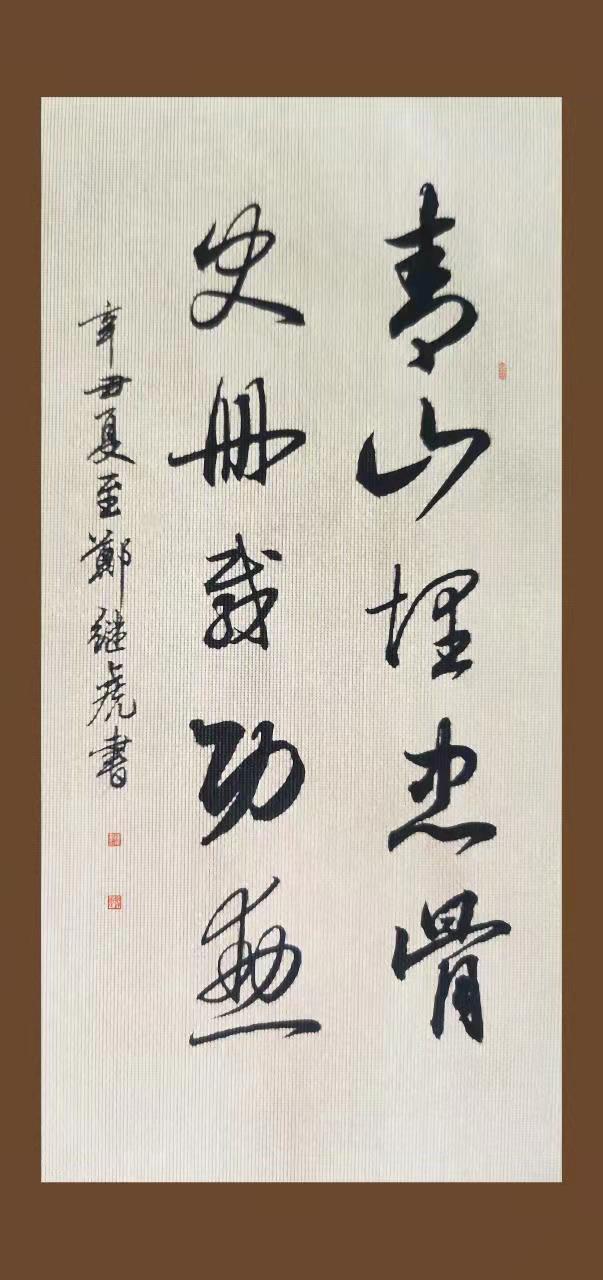 青山埋忠骨
史册载功勋
辛丑夏至鄭继虎書